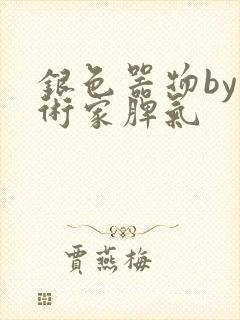 銀色器物by
術家脾氣
賈燕梅